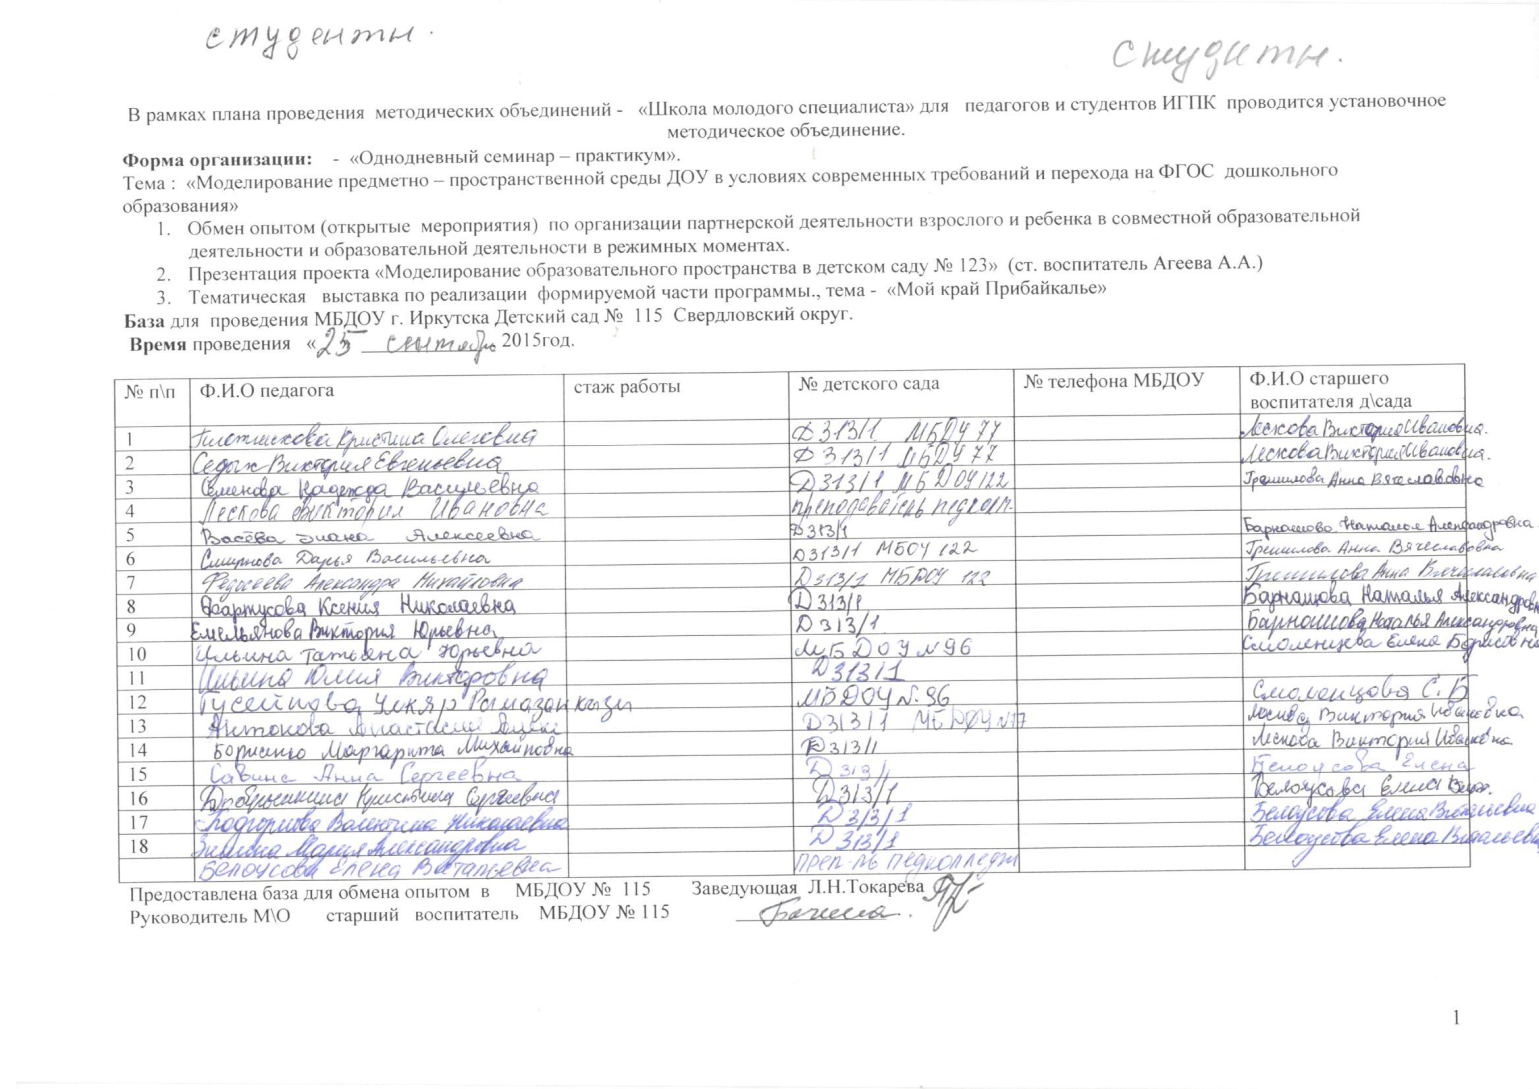 студенты.
студенты.
В рамках плана проведения методических объединений - «Школа молодого специалиста» для педагогов и студентов ИГПК проводится установочное
методическое объединение.
Форма организации: - «Однодневный семинар – практикум».
Тема : «Моделирование предметно – пространственной среды ДОУ в условиях современных требований и перехода на ФГОС дошкольного
образования»
1. Обмен опытом (открытые мероприятия) по организации партнерской деятельности взрослого и ребенка в совместной образовательной
деятельности и образовательной деятельности в режимных моментах.
2. Презентация проекта «Моделирование образовательного пространства в детском саду № 123» (ст. воспитатель Агеева А.А.)
3. Тематическая выставка по реализации формируемой части программы., тема - «Мой край Прибайкалье»
База для проведения МБДОУ г. Иркутска Детский сад № 115 Свердловский округ.
Время проведения «25 сентября 2015год.
№ п\п Ф.И.О педагога стаж работы № детского сада № телефона МБДОУ Ф.И.О старшего
воспитателя д\сада
1 Кристина Олеговна Д313/1 МБДУ 77 Лескова Виктория Ивановна.
2 Седых Виктория Евгеньевна Д313/1 МБДУ 77 Лескова Виктория Ивановна.
3 Семенова Надежда Васильевна Д313/1 МБДОУ 122 Гремилова Анна Вячеславовна
4 Лескова Виктория Ивановна преподаватель
5 Алексеевна Д313/1 Барнашова Наталья Александровна
6 Смирнова Дарья Васильевна Д313/1 МБОУ 122 Гремилова Анна Вячеславовна
7 Александра Михайловна Д313/1 МБДОУ 122 Гремилова Анна Вячеславовна
8 Фартусова Ксения Николаевна Д313/1 Барнашова Наталья Александровна
9 Емельянова Виктория Юрьевна Д313/1 Барнашова Наталья Александровна
10 Ильина Татьяна Юрьевна МБДОУ №96 Смоленцева Елена Борисовна
11 Ильина Юлия Викторовна Д313/1
12 Гусейнова Улкяр Рамазан кызы МБДОУ №96
13 Антонова Анастасия Д313/1 МБДОУ №77 Лескова Виктория Ивановна.
14 Маргарита Михайловна Д313/1 Лескова Виктория Ивановна.
15 Анна Сергеевна Д313/1 Белоусова Елена
16 Кристина Сергеевна Д313/1 Белоусова Елена
17 Валентина Николаевна Д313/1 Белоусова Елена Витальевна
18 Мария Александровна Д313/1 Белоусова Елена Витальевна
Белоусова Елена Витальевна преп-ль педколледж
Предоставлена база для обмена опытом в МБДОУ № 115 Заведующая Л.Н.Токарева
Руководитель М\О старший воспитатель МБДОУ № 115
1